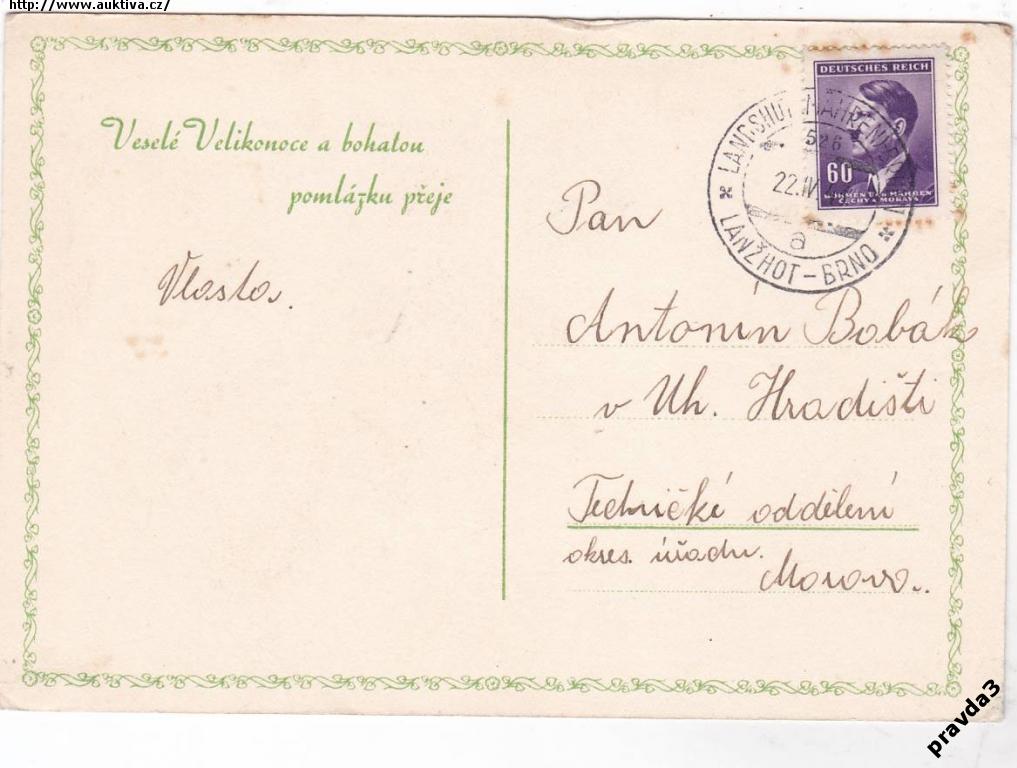 http://www.auktiva.cz/
Veselé Velikonoce a bohatou
pomlázku přeje
Vlasta.
DEUTSCHES REICH
60
BÖHMEN UND MÄHREN
ČECHY A MORAVA
LANDSHUT
526
22.IV
a
LANŽHOT - BRNO
Pan
Antonín Bobák
v Uh. Hradišti
Technické oddělení
okres. úřadu.
Morava.
pravda3